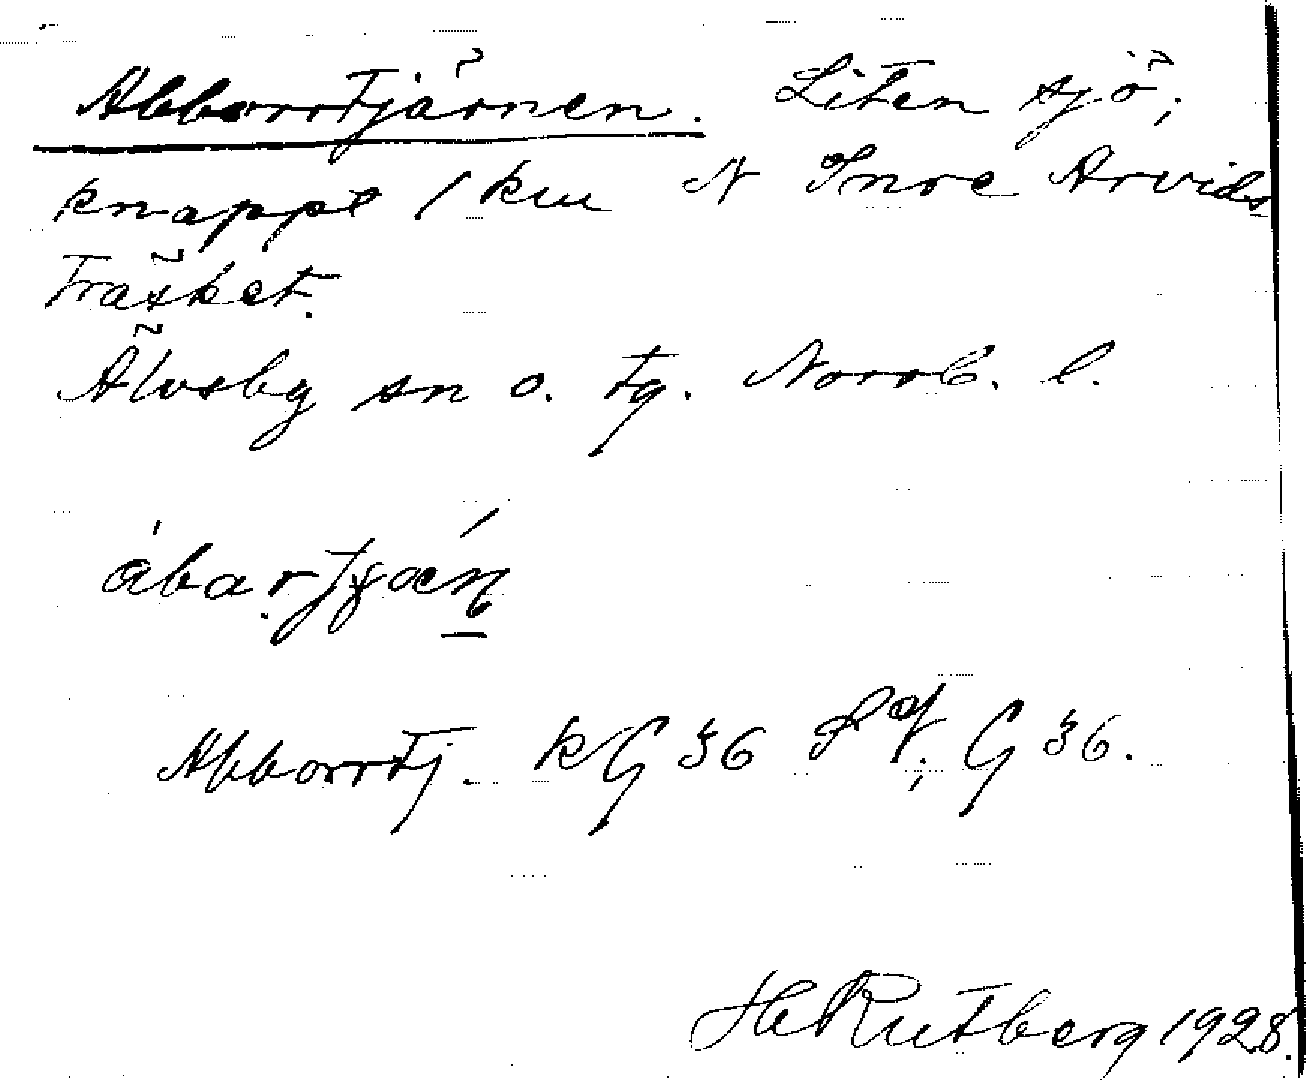 Abborrtjärnen. Liten sjö;
knappt 1 km N Inre Arvids-
träsket.
Älvsby sn o. tg. Norrb. l.
Abborrtj. kG 36 G 36.
H Rutberg 1928.